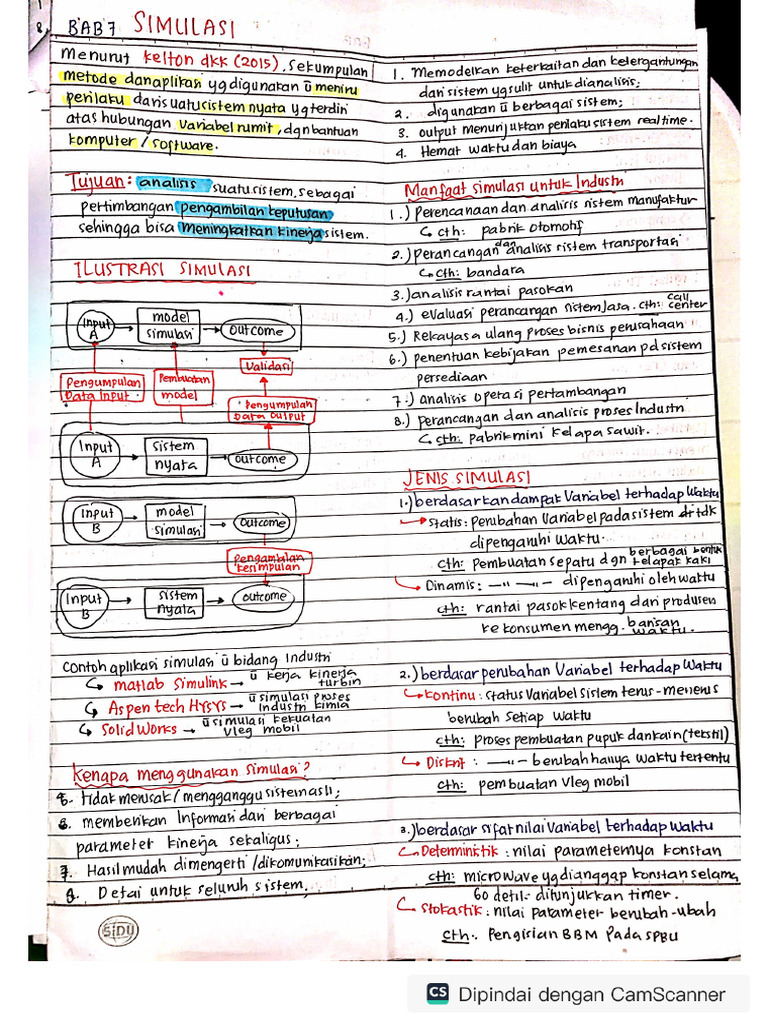 BAB 7 SIMULASI
Menurut Kelton dkk (2015), sekumpulan
metode dan aplikasi yg digunakan ū meniru
perilaku dari suatu sistem nyata yg terdiri
atas hubungan variabel rumit, dgn bantuan
komputer / software.
Tujuan: analisis suatu sistem, sebagai
pertimbangan pengambilan keputusan
sehingga bisa meningkatkan kinerja sistem.
ILUSTRASI SIMULASI
Input A
model simulasi
outcome
Validasi
Pengumpulan Data Input.
Pembuatan model
Pengumpulan Data Output
Input A
sistem nyata
outcome
Input B
model simulasi
outcome
Pengambilan kesimpulan
Input B
sistem nyata
outcome
Contoh aplikasi simulasi ū bidang Industri
matlab Simulink → ū kerja kinerja turbin
Aspen tech HYSYS → ū simulasi proses industri kimia
Solid Works → ū simulasi kekuatan Vleg mobil
Kenapa menggunakan simulasi?
5. tidak merusak / mengganggu sistem asli;
6. memberikan Informasi dari berbagai
parameter kinerja sekaligus;
7. Hasil mudah dimengerti / dikomunikasikan;
8. Detai untuk seluruh sistem.
SiDU
1. Memodelkan keterkaitan dan ketergantungan
dari sistem yg sulit untuk dianalisis;
2. digunakan ū berbagai sistem;
3. output menunjuktan perilaku sistem realtime.
4. Hemat waktu dan biaya
Manfaat simulasi untuk Industri
1.) perencanaan dan analisis sistem manufaktur
cth: pabrik otomotif
2.) perancangan dan analisis sistem transportasi
cth: bandara
3.) analisis rantai pasokan
4.) evaluasi perancangan sistem Jasa. cth: call center
5.) Rekayasa ulang proses bisnis perusahaan
6.) penentuan kebijakan pemesanan pd sistem
persediaan
7.) analisis operasi pertambangan
8.) perancangan dan analisis proses Industri
cth: pabrik mini kelapa sawit.
JENIS SIMULASI
1.) berdasarkan dampak Variabel terhadap Waktu
statis: Perubahan Variabel pada sistem tdk
dipengaruhi waktu.
cth: pembuatan sepatu dgn berbagai bentuk telapak kaki
Dinamis: —"— —"— dipengaruhi oleh waktu
cth: rantai pasok kentang dari produsen
ke konsumen mengg. barisan waktu.
2.) berdasar perubahan Variabel terhadap Waktu
kontinu: status Variabel sistem terus-menerus
berubah setiap waktu
cth: proses pembuatan pupuk dan kain (tekstil)
Diskrit: —"— berubah hanya waktu tertentu
cth: pembuatan Vleg mobil
3.) berdasar sifat nilai Variabel terhadap Waktu
Deterministik: nilai parameternya konstan
cth: microwave yg dianggap konstan selama
60 detik ditunjukkan timer.
Stokastik: nilai parameter berubah-ubah
cth: Pengisian BBM pada SPBU
CS Dipindai dengan CamScanner